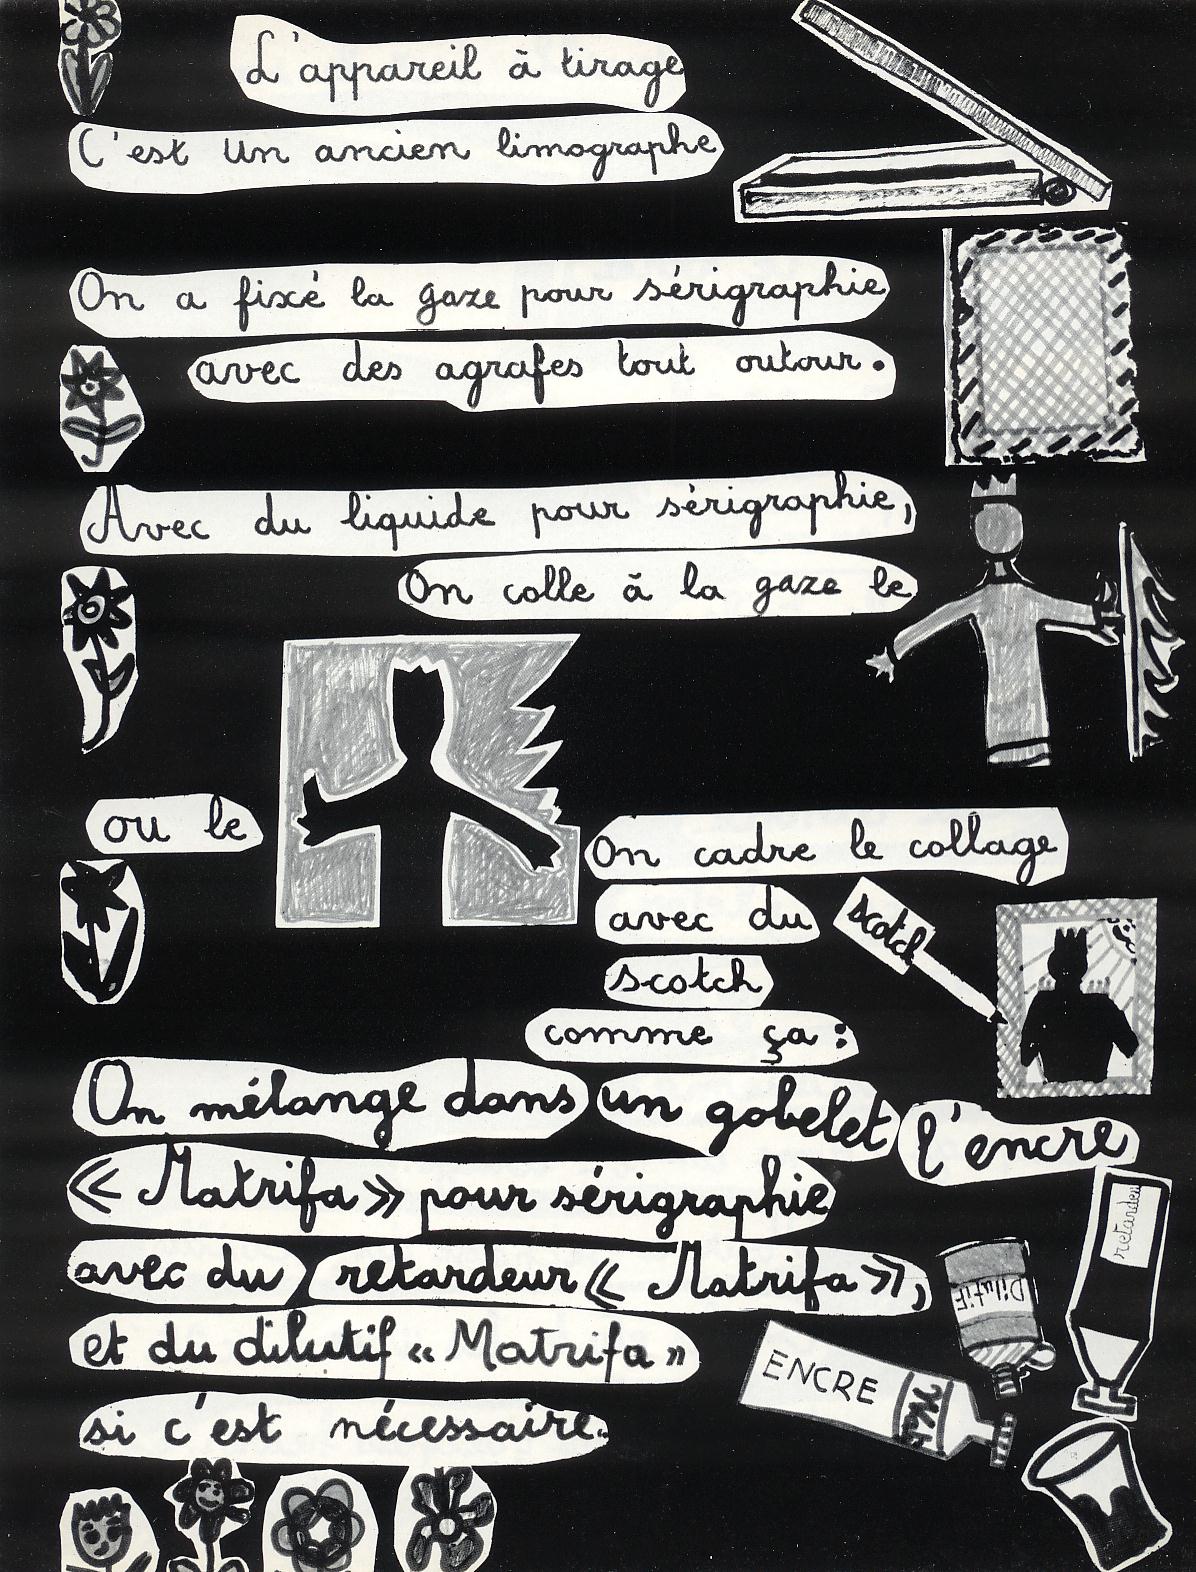 L'appareil à tirage
C'est un ancien limographe
On a fixé la gaze pour sérigraphie
avec des agrafes tout outour.
Avec du liquide pour sérigraphie,
On colle à la gaze le
ou le
On cadre le collage
avec du
scotch
scotch
comme ça :
On mélange dans un gobelet l'encre
« Matrifa » pour sérigraphie
avec du retardeur « Matrifa »,
et du dilutif « Matrifa »
si c'est nécessaire.
retardeur
Dilutif
ENCRE